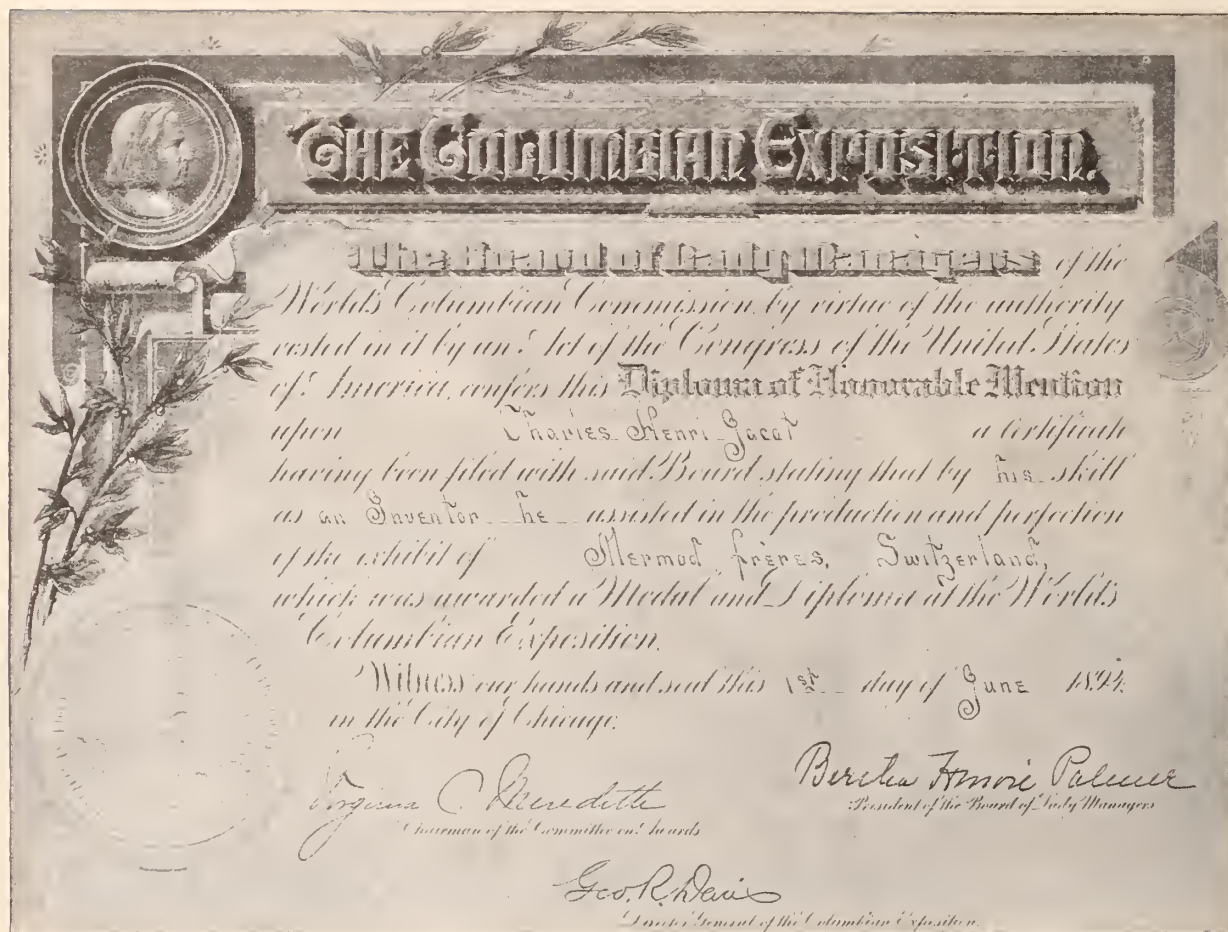 THE COLUMBIAN EXPOSITION.
The Board of Lady Managers of the
World's Columbian Commission, by virtue of the authority
vested in it by an Act of the Congress of the United States
of America, confers this Diploma of Honorable Mention
upon Charles Henri Jacot a certificate
having been filed with said Board stating that by his skill
as an Inventor he assisted in the production and perfection
of the exhibit of Mermod frères, Switzerland,
which was awarded a Medal and Diploma at the World's
Columbian Exposition.
Witness our hands and seal this 1st day of June 1894.
in the City of Chicago.
Virginia C Meredith
Chairman of the Committee on Awards
Bertha Honoré Palmer
President of the Board of Lady Managers
Geo. R. Davis
Director General of the Columbian Exposition.